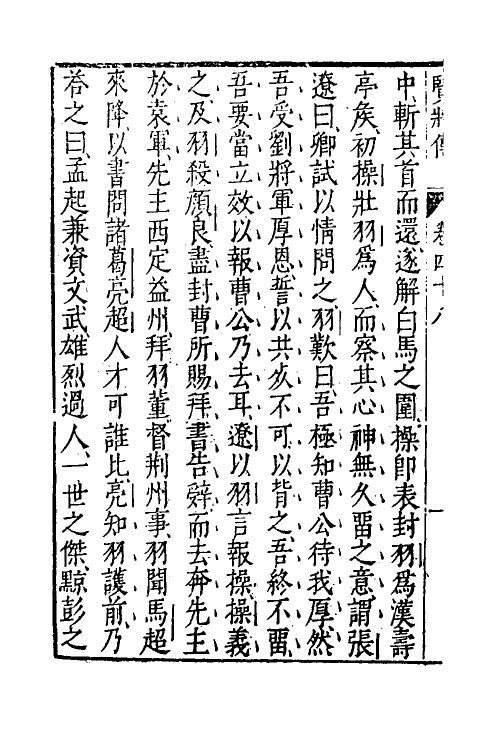 賢將傳 卷四十八 一
中斬其首而還遂解白馬之圍操卽表封羽爲漢壽
亭矦初操壯羽爲人而察其心神無久畱之意謂張
遼曰卿試以情問之羽歎曰吾極知曹公待我厚然
吾受劉將軍厚恩誓以共死不可以背之吾終不畱
吾要當立效以報曹公乃去耳遼以羽言報操操義
之及羽殺顔良盡封曹所賜拜書告辭而去奔先主
於袁軍先主西定益州拜羽董督荆州事羽聞馬超
來降以書問諸葛亮超人才可誰比亮知羽護前乃
荅之曰孟起兼資文武雄烈過人一世之傑黥彭之